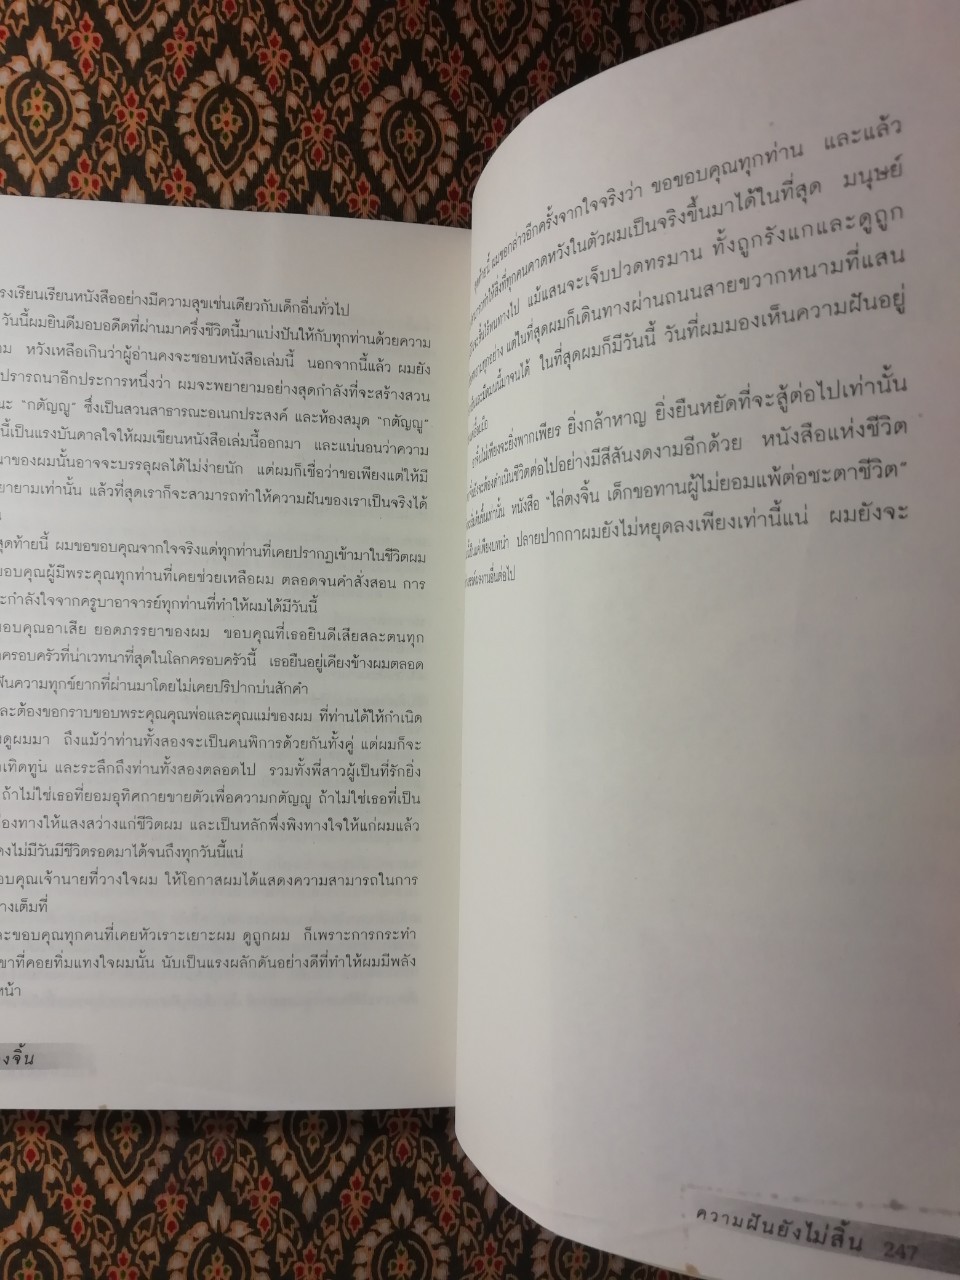 รงเรียนเรียนหนังสืออย่างมีความสุขเช่นเดียวกับเด็กอื่นทั่วไป
วันนี้ผมยินดีมอบอดีตที่ผ่านมาครึ่งชีวิตนี้มาแบ่งปันให้กับทุกท่านด้วยความ
หวังเหลือเกินว่าผู้อ่านคงจะชอบหนังสือเล่มนี้ นอกจากนี้แล้ว ผมยัง
ปรารถนาอีกประการหนึ่งว่า ผมจะพยายามอย่างสุดกำลังที่จะสร้างสวน
นะ "กตัญญู" ซึ่งเป็นสวนสาธารณะอเนกประสงค์ และห้องสมุด "กตัญญู"
นี้เป็นแรงบันดาลใจให้ผมเขียนหนังสือเล่มนี้ออกมา และแน่นอนว่าความ
นาของผมนั้นอาจจะบรรลุผลได้ไม่ง่ายนัก แต่ผมก็เชื่อว่าขอเพียงแต่ให้มี
ยายามเท่านั้น แล้วที่สุดเราก็จะสามารถทำให้ความฝันของเราเป็นจริงได้
สุดท้ายนี้ ผมขอขอบคุณจากใจจริงแด่ทุกท่านที่เคยปรากฏเข้ามาในชีวิตผม
ขอบคุณผู้มีพระคุณทุกท่านที่เคยช่วยเหลือผม ตลอดจนคำสั่งสอน การ
ะกำลังใจจากครูบาอาจารย์ทุกท่านที่ทำให้ผมได้มีวันนี้
ขอบคุณอาเสีย ยอดภรรยาของผม ขอบคุณที่เธอยินดีเสียสละตนทุก
ครอบครัวที่น่าเวทนาที่สุดในโลกครอบครัวนี้ เธอยืนอยู่เคียงข้างผมตลอด
ฟันความทุกข์ยากที่ผ่านมาโดยไม่เคยปริปากบ่นสักคำ
ละต้องขอกราบขอบพระคุณคุณพ่อและคุณแม่ของผม ที่ท่านได้ให้กำเนิด
งดูผมมา ถึงแม้ว่าท่านทั้งสองจะเป็นคนพิการด้วยกันทั้งคู่ แต่ผมก็จะ
เทิดทูน และระลึกถึงท่านทั้งสองตลอดไป รวมทั้งพี่สาวผู้เป็นที่รักยิ่ง
ถ้าไม่ใช่เธอที่ยอมอุทิศกายขายตัวเพื่อความกตัญญู ถ้าไม่ใช่เธอที่เป็น
องทางให้แสงสว่างแก่ชีวิตผม และเป็นหลักพึ่งพิงทางใจให้แก่ผมแล้ว
คงไม่มีวันมีชีวิตรอดมาได้จนถึงทุกวันนี้แน่
อบคุณเจ้านายที่วางใจผม ให้โอกาสผมได้แสดงความสามารถในการ
างเต็มที่
ละขอบคุณทุกคนที่เคยหัวเราะเยาะผม ดูถูกผม ก็เพราะการกระทำ
ขาที่คอยทิ่มแทงใจผมนั้น นับเป็นแรงผลักดันอย่างดีที่ทำให้ผมมีพลัง
หน้า
งจิ้น
ผมขอกล่าวอีกครั้งจากใจจริงว่า ขอขอบคุณทุกท่าน และแล้ว
สิ่งที่ทุกคนคาดหวังในตัวผมเป็นจริงขึ้นมาได้ในที่สุด มนุษย์
แม้แสนจะเจ็บปวดทรมาน ทั้งถูกรังแกและดูถูก
แต่ในที่สุดผมก็เดินทางผ่านถนนสายขวากหนามที่แสน
ในที่สุดผมก็มีวันนี้ วันที่ผมมองเห็นความฝันอยู่
จะยิ่งพากเพียร ยิ่งกล้าหาญ ยิ่งยืนหยัดที่จะสู้ต่อไปเท่านั้น
จะต้องดำเนินชีวิตต่อไปอย่างมีสีสันงดงามอีกด้วย หนังสือแห่งชีวิต
หนังสือ "ไล่ตงจิ้น เด็กขอทานผู้ไม่ยอมแพ้ต่อชะตาชีวิต"
ปลายปากกาผมยังไม่หยุดลงเพียงเท่านี้แน่ ผมยังจะ
งานอื่นต่อไป
ความฝันยังไม่สิ้น 247